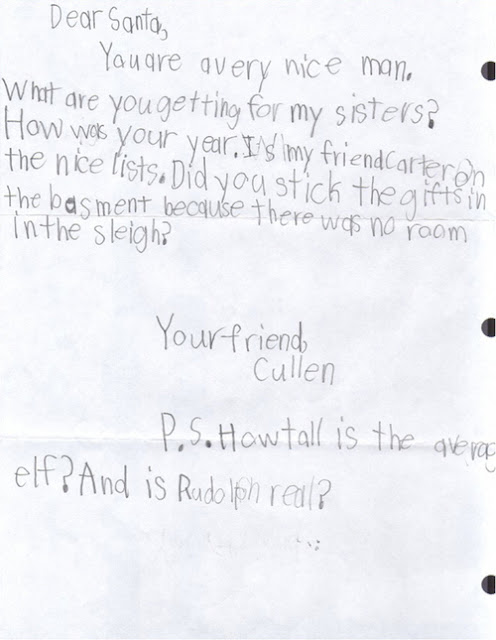 Dear Santa,
You are a very nice man.
What are you getting for my sisters?
How was your year. Is my friend Carter on
the nice lists. Did you stick the gifts in
the basment because there was no room
in the sleigh?
Your friend,
Cullen
P.S. How tall is the averag
elf? And is Rudolph real?